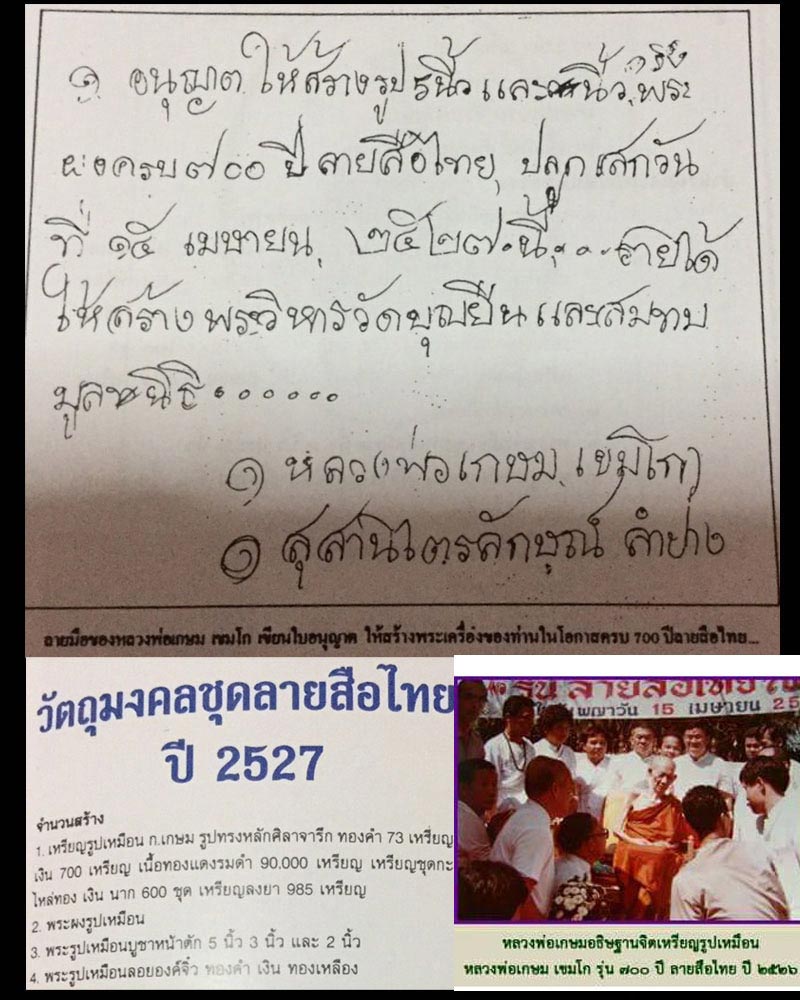 ๑ อนุญาต ให้สร้างรูป ๕นิ้ว และ ๓นิ้ว, พระ
ผงครบ ๗๐๐ ปี ลายสือไทย, ปลุกเสกวัน
ที่ ๑๕ เมษายน, ๒๕๒๗.นี้.... รายได้
ให้สร้าง พระวิหารวัดบุญยืน และสมทบ
มูลหนิธิ.......
๑ หลวงพ่อเกษม, เขมิโก)
๑ สุสานไตรลักษณ์ ลำปาง
ลายมือของหลวงพ่อเกษม เขมโก เขียนใบอนุญาต ให้สร้างพระเครื่องของท่านในโอกาสครบ 700 ปีลายสือไทย...
วัตถุมงคลชุดลายสือไทย
ปี 2527
จำนวนสร้าง
1. เหรียญรูปเหมือน ก.เกษม รูปทรงหลักศิลาจารึก ทองคำ 73 เหรียญ
เงิน 700 เหรียญ เนื้อทองแดงรมดำ 90.000 เหรียญ เหรียญชุดกะ
ไหล่ทอง เงิน นาก 600 ชุด เหรียญลงยา 985 เหรียญ
2. พระผงรูปเหมือน
3. พระรูปเหมือนบูชาหน้าตัก 5 นิ้ว 3 นิ้ว และ 2 นิ้ว
4. พระรูปเหมือนลอยองค์จิ๋ว ทองคำ เงิน ทองเหลือง
รุ่น ลายสือไทย
พญาวัน 15 เมษายน 25
หลวงพ่อเกษมอธิษฐานจิตเหรียญรูปเหมือน
หลวงพ่อเกษม เขมโก รุ่น ๗๐๐ ปี ลายสือไทย ปี ๒๕๒๖